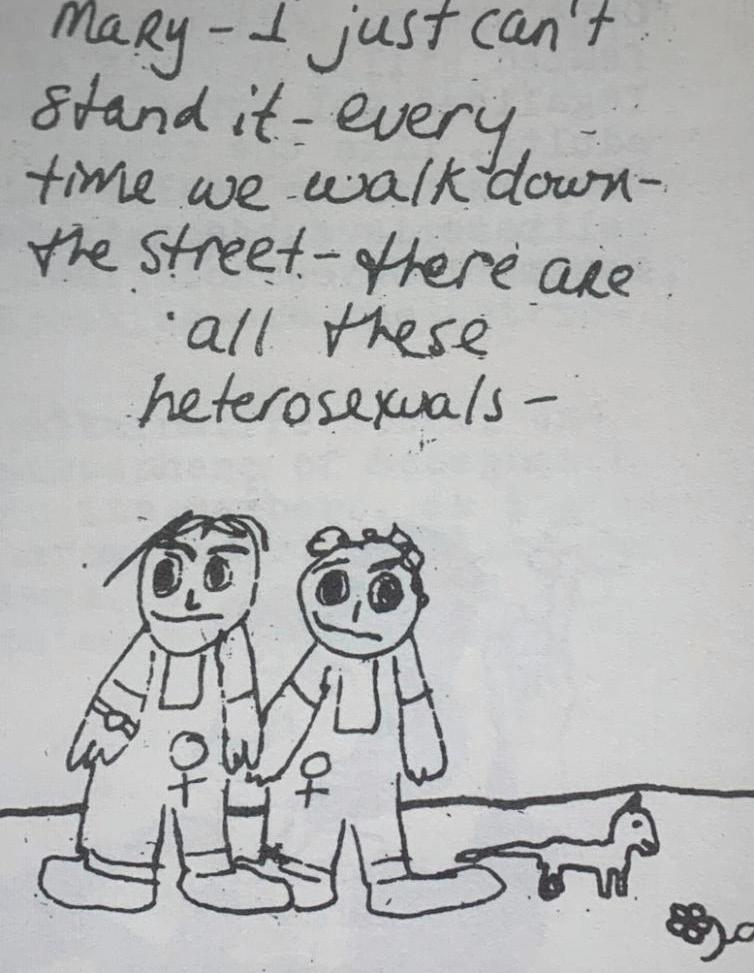 Mary - I just can't
stand it - every
time we walk down -
the street - there are
all these
heterosexuals -